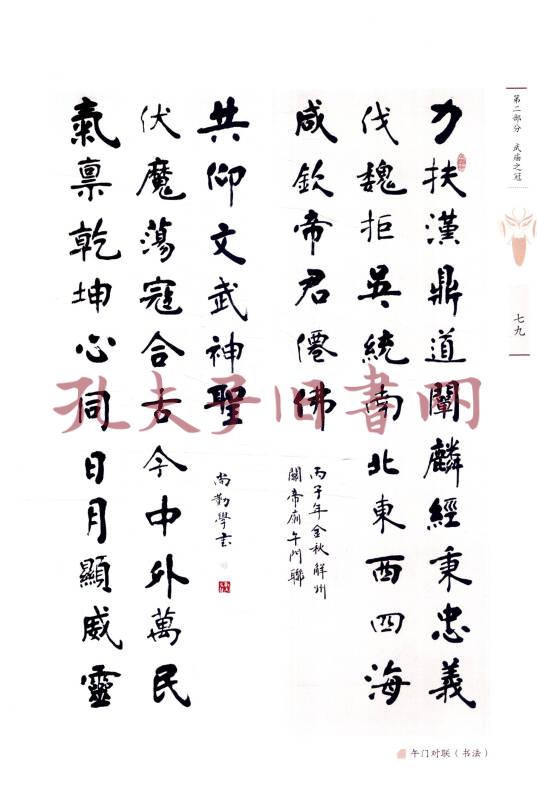 力扶漢鼎道闡麟經秉忠義
伐魏拒吳統南北東西四海
咸欽帝君僊佛
丙子年金秋解州
關帝廟午門聯
共仰文武神聖
伏魔蕩寇合古今中外萬民
氣稟乾坤心同日月顯威靈
尚勤學書
第二部分 武庙之冠
七九
午门对联（书法）
孔夫子旧书网